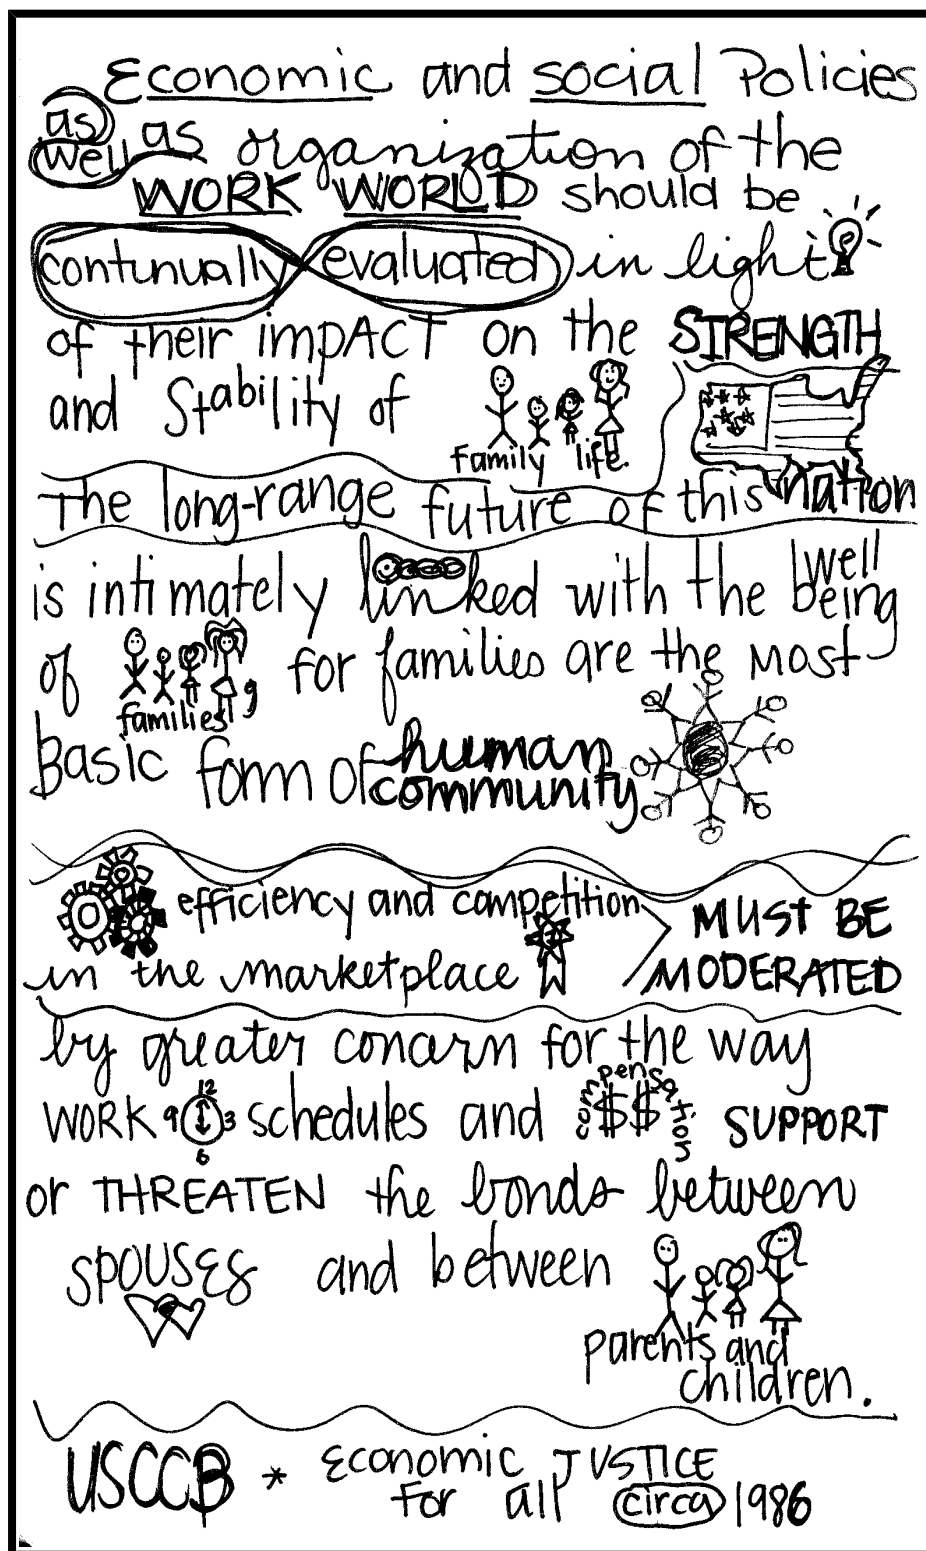 Economic and social Policies
as well as organization of the
WORK WORLD should be
continually evaluated in light
of their impACT on the STRENGTH
and Stability of
family life.
The long-range future of this nation
is intimately linked with the well being
of families, for families are the most
Basic form of human community
efficiency and competition
in the marketplace
MUST BE
MODERATED
by greater concern for the way
WORK schedules and compensation SUPPORT
12
9 3
6
$$
or THREATEN the bonds between
SPOUSES and between
parents and
children.
USCCB * Economic JUSTICE
for all circa 1986